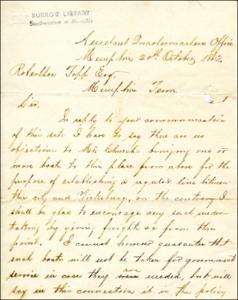 BURROW LIBRARY
Southwestern at Memphis
Assistant Quartermasters Office
Memphis 20th October 186
Robertson Topp Esq.
Memphis Tenn
Sir.
In reply to your communication
of this date I have to say there are no
objections to Mr Church bringing one or
more boats to this place from above for the
purpose of establishing a regular line between
this city and Vicksburg, on the contrary I
shall be glad to encourage any such under-
taking by giving freight so far from this
point. I cannot however guarantee that
such boats will not be taken for government
service in case they were needed, but will
say in this connection it is the policy